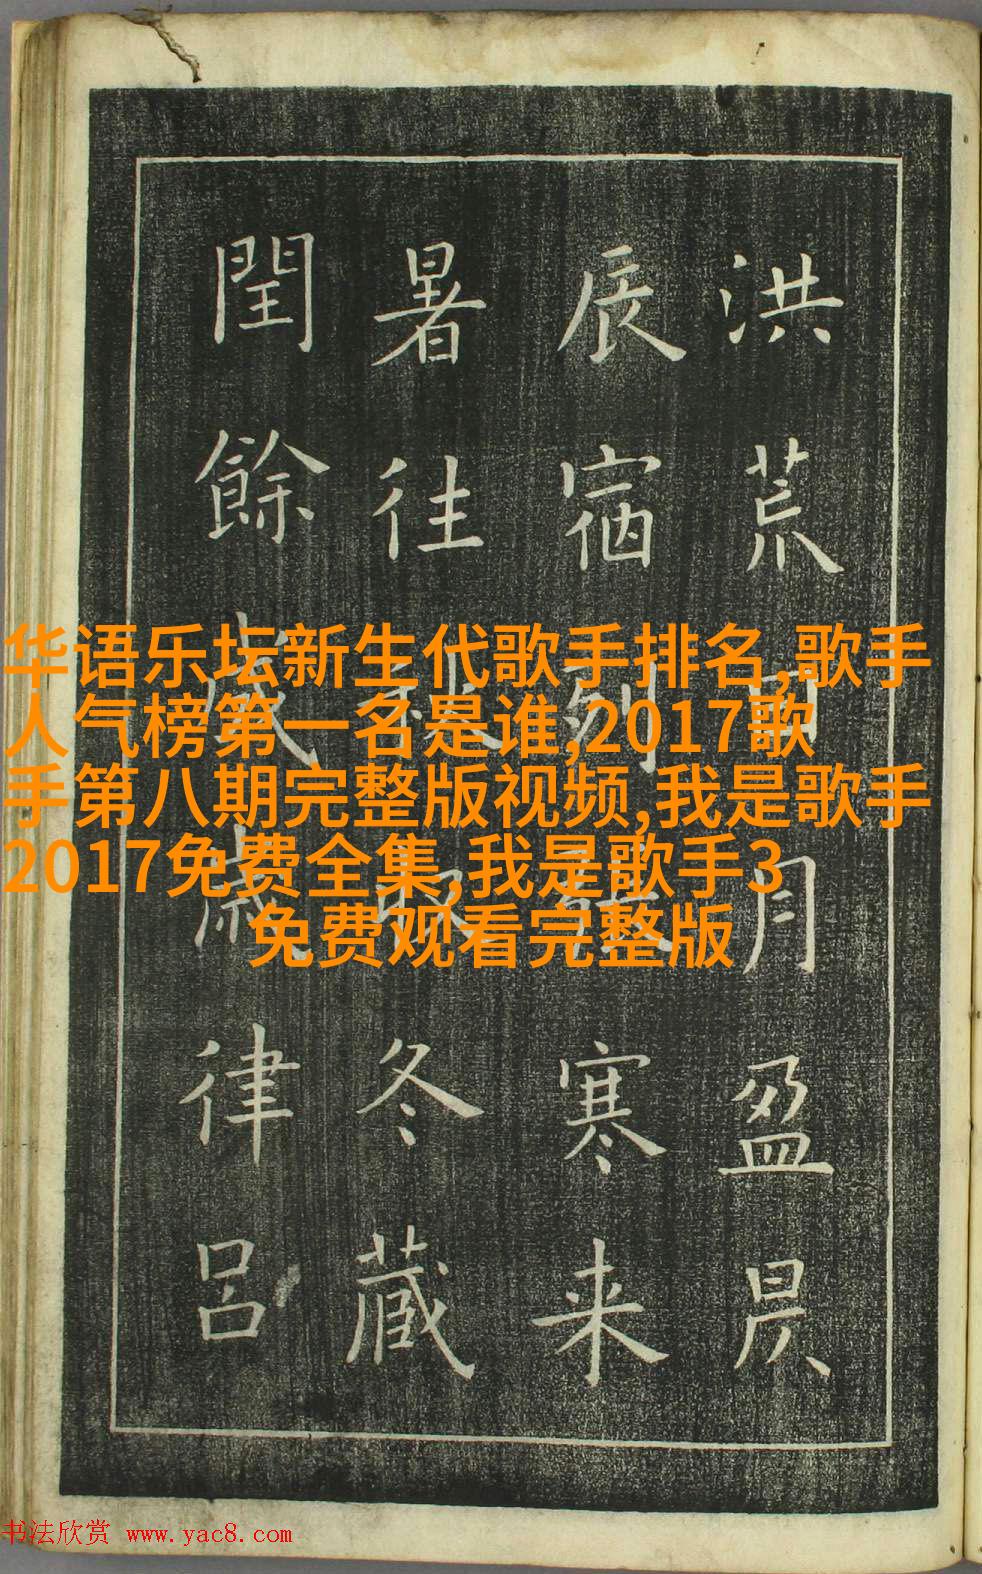 洪荒日月盈昃
辰宿列張寒来
暑往秋收冬藏
閏餘成歲律呂
华语乐坛新生代歌手排名,歌手
人气榜第一名是谁,2017歌
手第八期完整版视频,我是歌手
2017免费全集,我是歌手3
免费观看完整版
书法欣赏 www.yac8.com